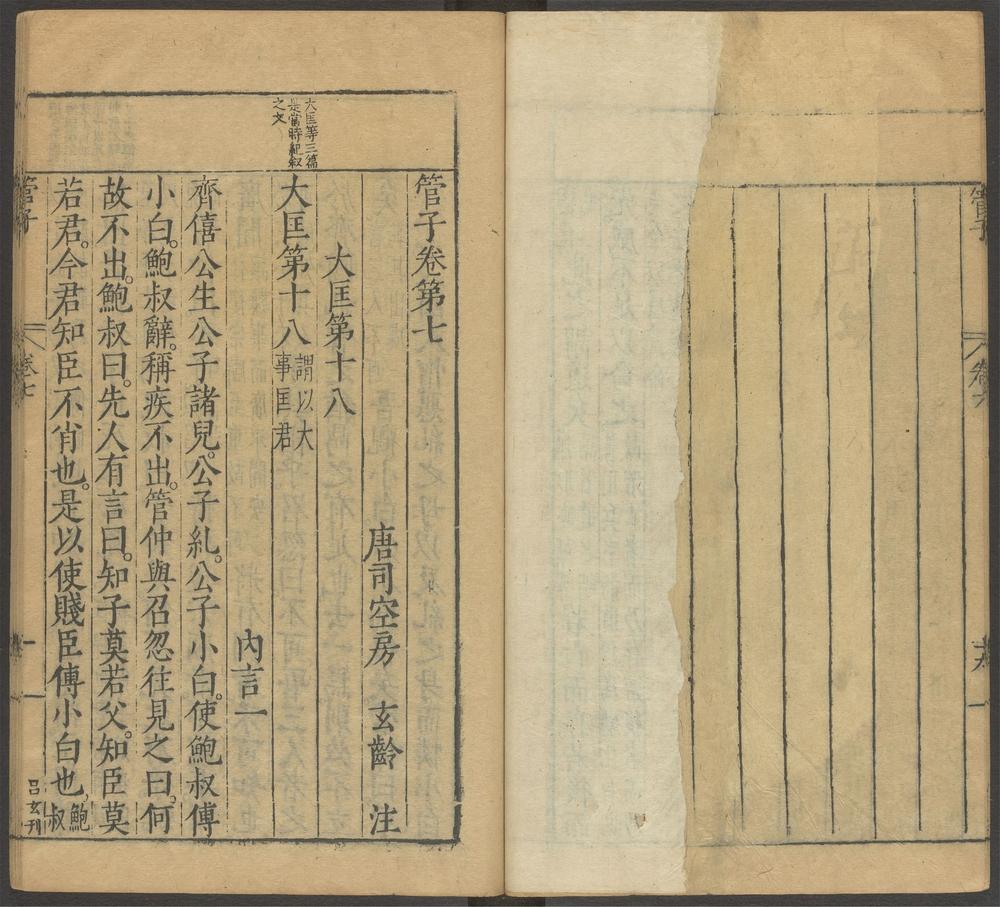 管子
卷六
十六
大匡等三篇
是當時紀叙
之文
管子卷第七
唐司空房　玄齡　注
大匡第十八
大匡第十八
謂以大
事匡君
內言一
齊僖公生公子諸兒。公子糺。公子小白。使鮑叔傅
小白。鮑叔辭。稱疾不出。管仲與召忽往見之曰。何
故不出。鮑叔曰。先人有言曰。知子莫若父。知臣莫
若君。今君知臣不肖也。是以使賤臣傅小白也。
鮑
叔
管子
卷七
一
呂玄刊